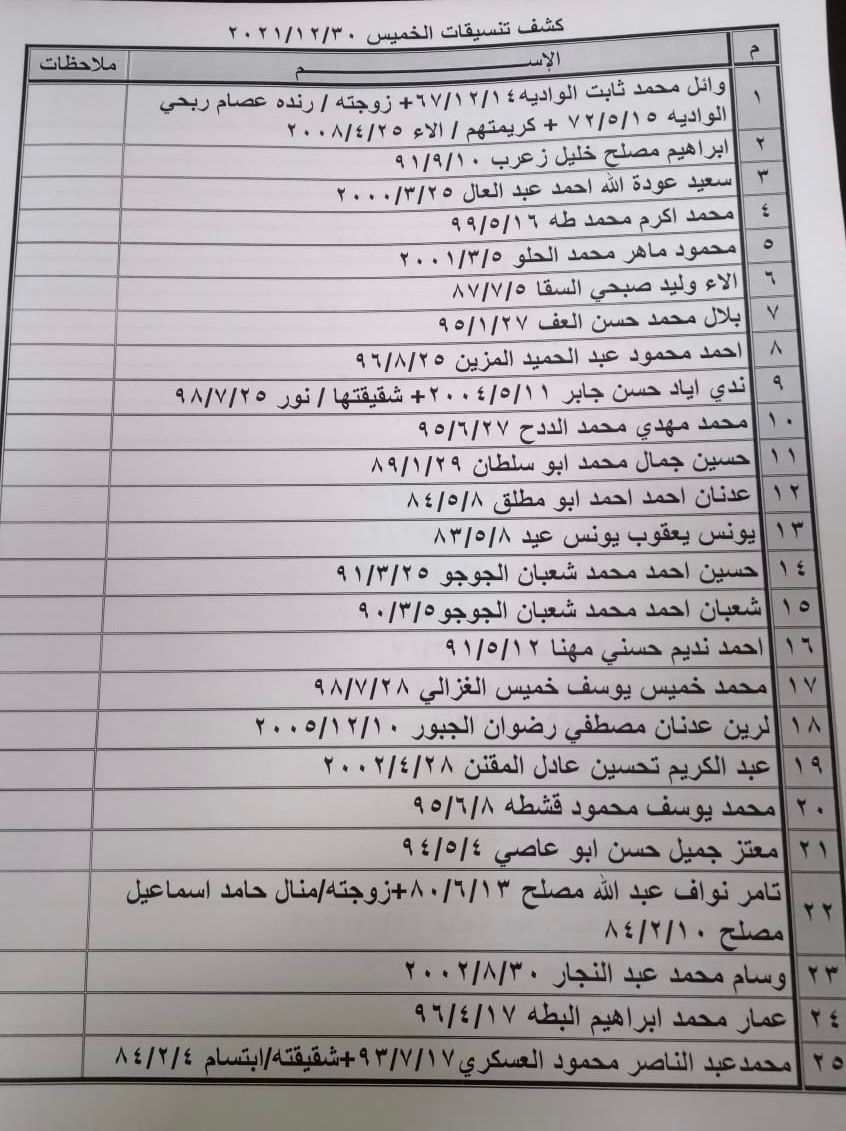 كشف تنسيقات الخميس ٢٠٢١/١٢/٣٠
م الإســـــــــــــــــم ملاحظات
١ وائل محمد ثابت الواديه ٦٧/١٢/١٤+ زوجته / رنده عصام ربحي
الواديه ٧٢/٥/١٥ + كريمتهم / الاء ٢٠٠٨/٤/٢٥
٢ ابراهيم مصلح خليل زعرب ٩١/٩/١٠
٣ سعيد عودة الله احمد عبد العال ٢٠٠٠/٣/٢٥
٤ محمد اكرم محمد طه ٩٩/٥/١٦
٥ محمود ماهر محمد الحلو ٢٠٠١/٣/٥
٦ الاء وليد صبحي السقا ٨٧/٧/٥
٧ بلال محمد حسن العف ٩٥/١/٢٧
٨ احمد محمود عبد الحميد المزين ٩٦/٨/٢٥
٩ ندي اياد حسن جابر ٢٠٠٤/٥/١١+ شقيقتها / نور ٩٨/٧/٢٥
١٠ محمد مهدي محمد الددح ٩٥/٦/٢٧
١١ حسين جمال محمد ابو سلطان ٨٩/١/٢٩
١٢ عدنان احمد احمد ابو مطلق ٨٤/٥/٨
١٣ يونس يعقوب يونس عيد ٨٣/٥/٨
١٤ حسين احمد محمد شعبان الجوجو ٩١/٣/٢٥
١٥ شعبان احمد محمد شعبان الجوجو ٩٠/٣/٥
١٦ احمد نديم حسني مهنا ٩١/٥/١٢
١٧ محمد خميس يوسف خميس الغزالي ٩٨/٧/٢٨
١٨ لرين عدنان مصطفي رضوان الجبور ٢٠٠٥/١٢/١٠
١٩ عبد الكريم تحسين عادل المقتن ٢٠٠٢/٤/٢٨
٢٠ محمد يوسف محمود قشطه ٩٥/٦/٨
٢١ معتز جميل حسن ابو عاصي ٩٤/٥/٤
٢٢ تامر نواف عبد الله مصلح ٨٠/٦/١٣+زوجته/منال حامد اسماعيل
مصلح ٨٤/٢/١٠
٢٣ وسام محمد عبد النجار ٢٠٠٢/٨/٣٠
٢٤ عمار محمد ابراهيم البطه ٩٦/٤/١٧
٢٥ محمدعبد الناصر محمود العسكري ٩٣/٧/١٧+شقيقته/ابتسام ٨٤/٢/٤